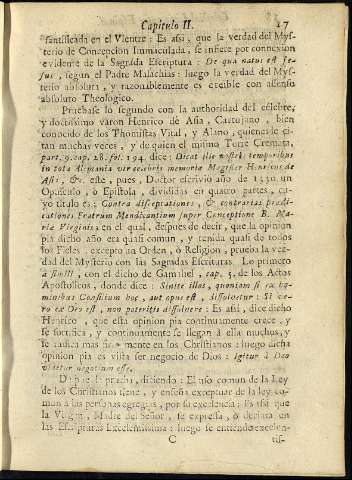 Capitulo II. 17
santificada en el Vientre: Es assi, que la verdad del Mys-
terio de Concepcion Inmaculada, se infiere por connexion
evidente de la Sagrada Escriptura: De qua natus est Je-
sus, segun el Padre Malachias: luego la verdad del Mys-
terio absoluta, y razonablemente es creible con assenso
absoluto Theologico.
Pruebase lo segundo con la authoridad del celebre,
y doctissimo varon Henrico de Asia, Cartujano, bien
conocido de los Thomistas Vital, y Alano, quienes le ci-
tan muchas veces, y de quien el mismo Torre Cremata,
part. 9. cap. 28. fol. 194. dice: Dicat ille nostris temporibus
in tota Alimania vir celebris memoria Magister Henricus de
Asia, &c. este, pues, Doctor escriviò año de 1330. un
Opusculo, ò Epistola, divididas en quatro partes, cu-
yo titulo es: Contra disceptationes, & contrarias prædi-
cationes Fratrum Mendicantium super Conceptione B. Ma-
ria Virginis, en el qual, despues de decir, que la opinion
pia dicho año era quasi comun, y tenida quasi de todos
los Fieles, excepto un Orden, ò Religion, prueba la ver-
dad del Mysterio con las Sagradas Escrituras. Lo primero
à simili, con el dicho de Gamaliel, cap. 5. de los Actos
Apostolicos, donde dice: Sinite illos, quoniam si ex ho-
minibus Consilium hoc, aut opus est, dissolvetur: Si ve-
ro ex Deo est, non poteritis dissolvere: Es assi, dice dicho
Henrico, que esta opinion pia continuamente crece, y
se fortifica, y continuamente se llegan à ella muchos, y
se radica mas firmemente en los Christianos: luego dicha
opinion pia es vista ser negocio de Dios: Igitur à Deo
videtur negotium esse.
la prueba, diciendo: El uso comun de la Ley
de los Christianos tiene, y enseña exceptuar de la ley co-
mun à las personas egregias, por su excelencia: Es assi que
la Virgen, Madre del Señor, se expressa, ò declara en
las Escripturas Excelentissima: luego se entiende excelen-
C tis-